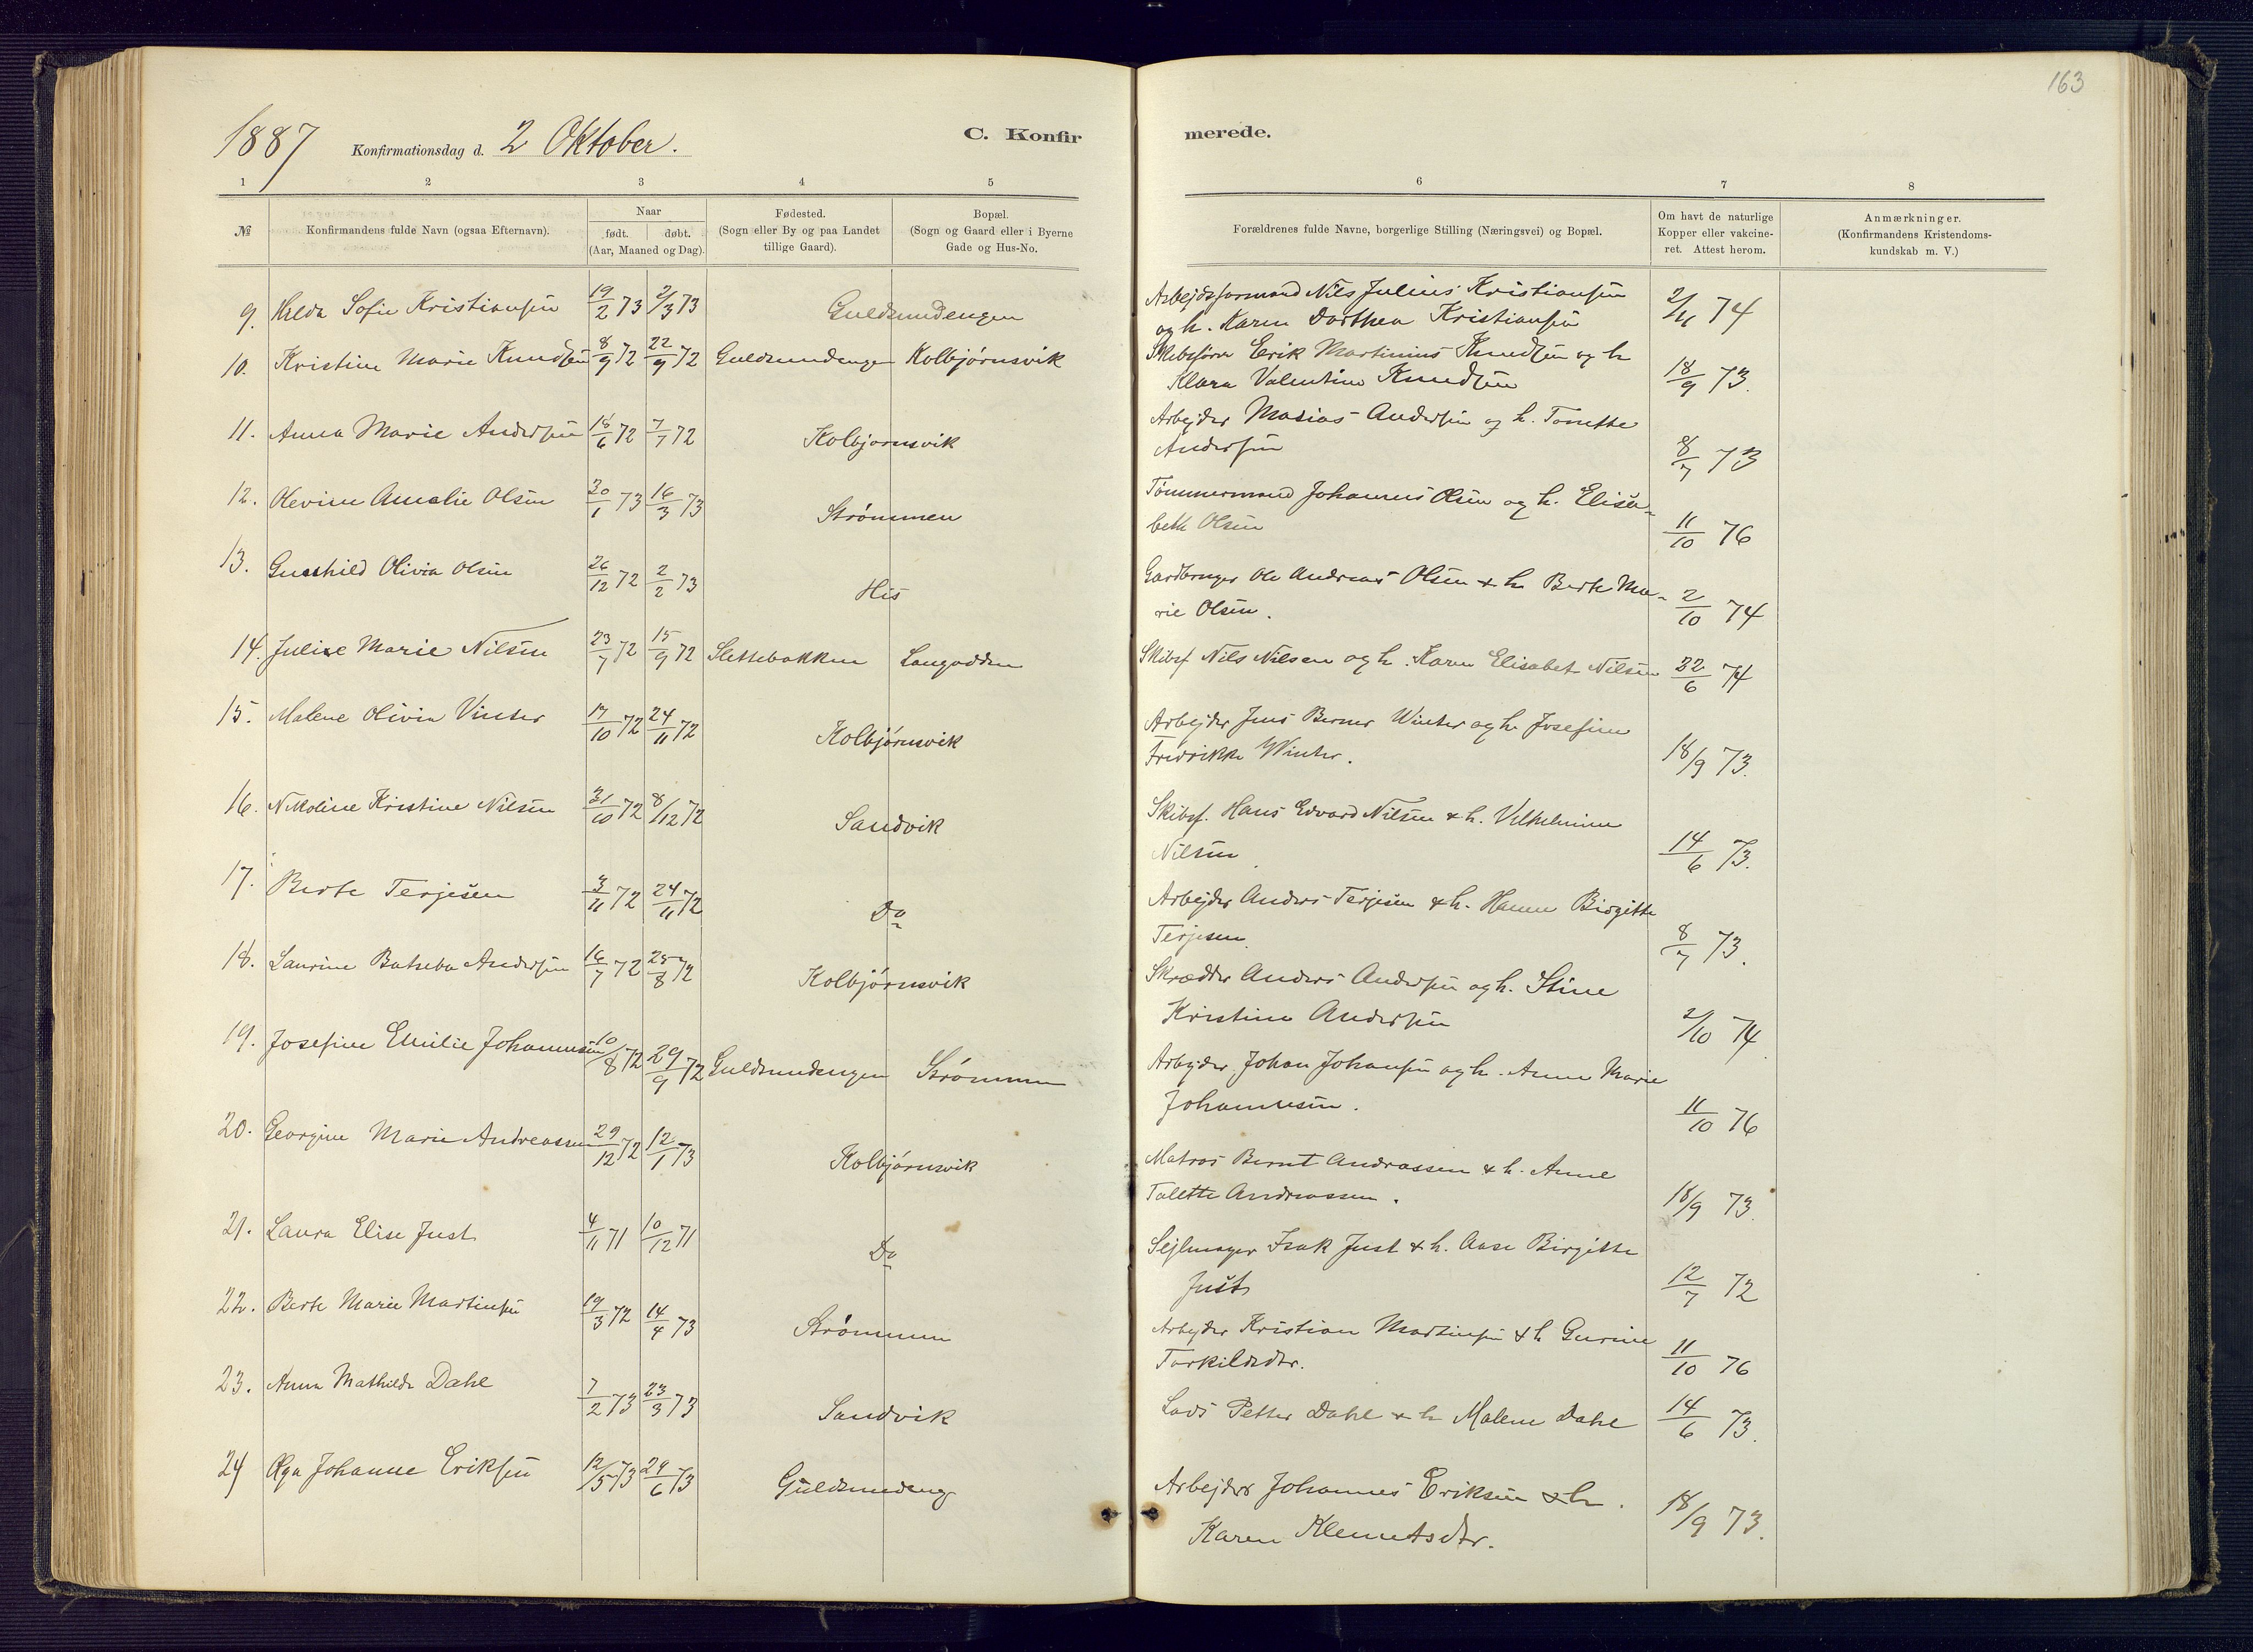 163
1887 Konfirmationsdag d. 2 Oktober. C. Konfirmerede.
1 2 3 4 5 6 7 8
№ Konfirmandens fulde Navn (ogsaa Efternavn). Naar født. døbt. (Aar, Maaned og Dag). Fødested. (Sogn eller By og paa Landet tillige Gaard). Bopæl. (Sogn og Gaard eller i Byerne Gade og Hus-No. Forældrenes fulde Navne, borgerlige Stilling (Næringsvei) og Bopæl. Om havt de naturlige Kopper eller vakcineret. Attest herom. Anmærkninger. (Konfirmandens Kristendomskundskab m. V.)
9. Hilda Sofie Kristiansen 19/2 73 2/3 73 Guldsmedengen Arbejdsformand Nils Julius Kristiansen 2/11 74
og h. Karen Dorthea Kristiansen
10. Kristine Marie Knudsen 8/9 72 22/9 72 Guldsmedengen Kolbjørnsvik Skibsfører Erik Martinius Knudsen og h
Klara Valentine Knudsen 18/9 73.
11. Anna Marie Andersen 16/6 72 7/7 72 Kolbjornsvik Arbejder Masias Andersen og h. Tonette
Andersen 8/7 73
12. Olevine Amalie Olsen 30/1 73 16/3 73 Strømmen Tømmermand Johannes Olsen og h. Elisa-
beth Olsen 11/10 76
13. Gunhild Olivia Olsen 26/12 72 2/2 73 His Gardbruger Ole Andreas Olsen & h Berte Ma-
rie Olsen. 2/10 74
14. Julie Marie Nilsen 23/7 72 15/9 72 Slettebakken Langodden Skibsf Nils Nilsen og h. Karen Elisabet Nilsen 22/6 74
15. Malene Olivia Vinter 17/10 72 24/11 72 Kolbjørnsvik Arbejder Jens Berner Winter og h. Josefine
Fredrikke Winter. 18/9 73.
16. Nikoline Kristine Nilsen 31/10 72 8/12 72 Sandvik Skibsf. Hans Edvard Nilsen & h. Vilhelmine
Nilsen 14/6 73.
17. Berte Terjesen 3/11 72 24/11 72 Do Arbejder Anders Terjesen & h. Hanne Birgitte
Terjesen 8/7 73.
18. Laurine Batseba Andersen 16/7 72 25/8 72 Kolbjørnsvik Skrædder Anders Andersen og h. Stine
Kristine Andersen 2/10 74
19. Josefine Emilie Johannesen 10/8 72 29/9 72 Guldsmedengen Strømmen Arbejder Johan Johansen og h. Anne Marie
Johannesen. 11/10 76
20. Georgine Marie Andreassen 29/12 72 12/1 73 Kolbjørnsvik Matros Bernt Andreassen & h. Anne
Talette Andreassen. 18/9 73.
21. Laura Elise Just 4/11 71 10/12 71 Do Sejlmager Isak Just & h. Aase Birgitte
Just 12/7 72
22. Berte Marie Martinsen 19/3 72 14/4 73 Strømmen Arbejder Kristian Martinsen & h Gurine
Torkildsdtr. 11/10 76
23. Anna Mathilde Dahl 7/2 73 23/3 73 Sandvik Lods Petter Dahl & h Malene Dahl 14/6 73.
24 Olga Johanne Eriksen 12/5 73 29/6 73 Guldsmedeng Arbejder Johannes Eriksen & h.
Karen Klemetsdtr. 18/9 73.